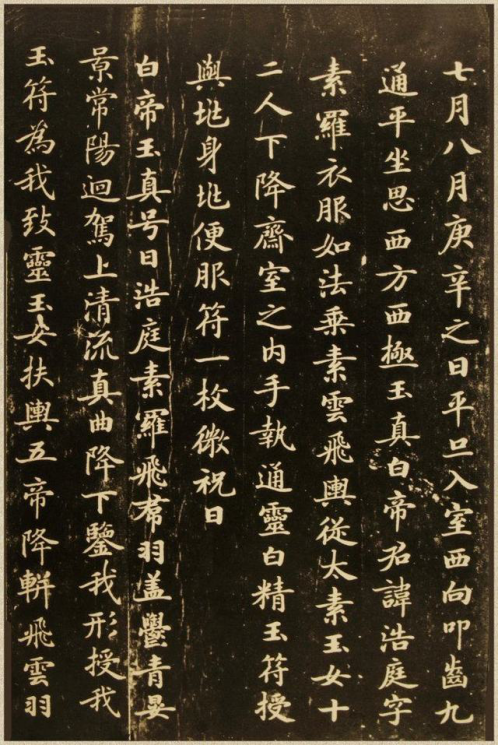 七月八月庚辛之日平旦入室西向叩齒九
通平坐思西方西極玉真白帝君諱浩庭字
素羅衣服如法乘素雲飛輿從太素玉女十
二人下降齋室之内手執通靈白精玉符授
與垗身垗便服符一枚微祝曰
白帝玉真号曰浩庭素羅飛帬羽盖欝青晏
景常陽迴駕上清流真曲降下鑒我形授我
玉符為我致靈玉女扶輿五帝降軿飛雲羽